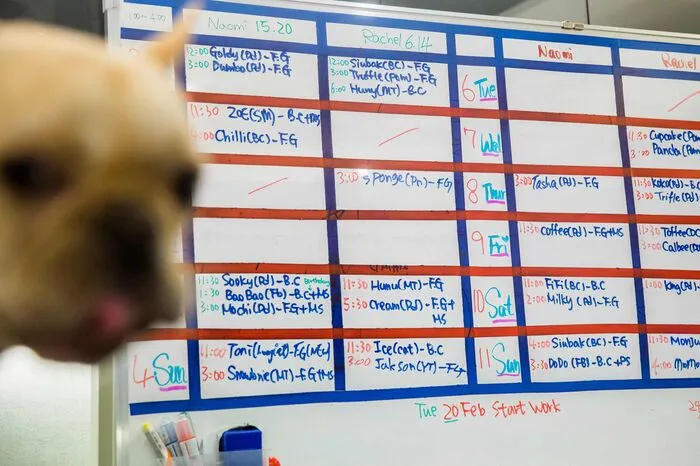 Naomi 15.20
Rachel 6.14
Naomi
Rachel
12:00 Goldy(Pd)-F.G
3:00 Dumbo(Pd)-F.G
12:00 Siubak(BC)-F.G
3:00 Truffle(Pom)-F.G
6:00 Humu(MT)-B.C
6 Tue
11:30 ZOE(SM)-B.C+MS
4:00 Chilli(BC)-F.G
7 Wed
11:30 Cupcake
3:00 Panda
3:00 Sponge(Pn)-F.G
8 Thur
3:00 Tasha(Pd)-F.G
11:30 Koko(Pd)
3:00 Trifle(Pd)
9 Fri
11:30 Coffee(Pd)-F.G+MS
11:30 Toffee
3:00 Calbee
11:30 Sooky(Pd)-B.C Birthday
1:30 BaoBao(Fb)-B.C+MS
3:00 Mochi(Pd)-F.G+MS
11:30 Humu(MT)-F.G
5:30 Cream(Pd)-F.G+
MS
10 Sat
11:00 FiFi(BC)-B.C
2:00 Milky(Pd)-F.G
1:00
4 Sun
11:00 Toni
3:00 Snowbie(MT)-F.G+MS
11:30 Ice(cat)-B.C
3:00 Jakson(YT)-F.G
11 Sun
4:00 Siubak(BC)-F.G
3:30 DoDo(FB)-B.C+PS
11:30
4:00
Tue 20 Feb Start Work